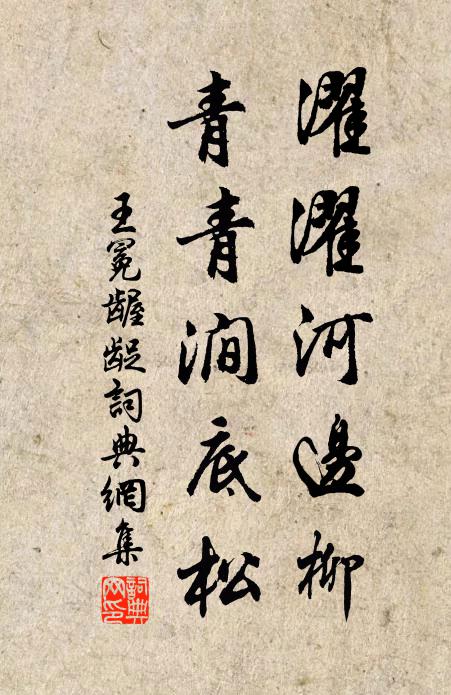 濯濯河邊柳
青青澗底松
王冕齷齪詞典網集
詞典
網印